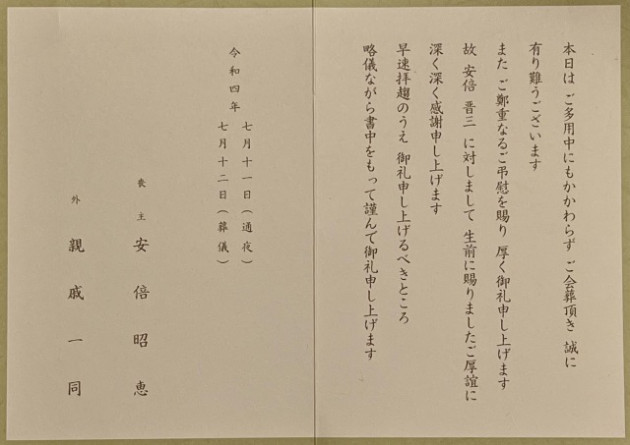 本日は ご多用中にもかかわらず ご会葬頂き 誠に
有り難うございます
また ご鄭重なるご弔慰を賜り 厚く御礼申し上げます
故 安倍 晋三 に対しまして 生前に賜りましたご厚誼に
深く深く感謝申し上げます
早速拝趨のうえ 御礼申し上げるべきところ
略儀ながら書中をもって謹んで御礼申し上げます
令和四年
七月十一日(通夜)
七月十二日(葬儀)
喪主 安倍昭恵
外 親戚一同